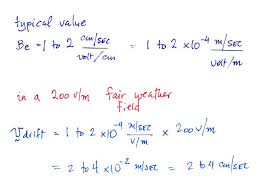 typical value
Be = 1 to 2 cm/sec / volt/cm = 1 to 2 x 10^-4 m/sec / volt/m
in a 200 v/m fair weather field
v drift = 1 to 2 x 10^-4 m/sec / v/m x 200 v/m
= 2 to 4 x 10^-2 m/sec = 2 to 4 cm/sec